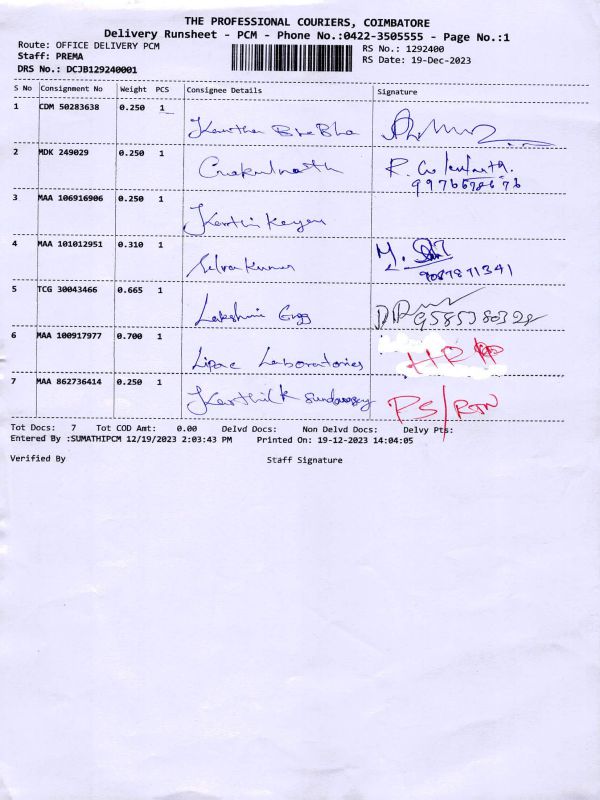 THE PROFESSIONAL COURIERS, COIMBATORE
Delivery Runsheet - PCM - Phone No.:0422-3505555 - Page No.:1
Route: OFFICE DELIVERY PCM RS No.: 1292400
Staff: PREMA RS Date: 19-Dec-2023
DRS No.: DCJB129240001
S No Consignment No Weight PCS Consignee Details Signature
1 CDM 50283638 0.250 1
2 MDK 249029 0.250 1 Gokulnath R. Gokulnath.
3 MAA 106916906 0.250 1 Karthi Keyan
4 MAA 101012951 0.310 1 Selva Kumar M.
9087871341
5 TCG 30043466 0.665 1 Lakshmi Egg 9585380328
6 MAA 100917977 0.700 1 Lipac Laboratories
7 MAA 862736414 0.250 1 Karthik PS/RTN
Tot Docs: 7 Tot COD Amt: 0.00 Delvd Docs: Non Delvd Docs: Delvy Pts:
Entered By :SUMATHIPCM 12/19/2023 2:03:43 PM Printed On: 19-12-2023 14:04:05
Verified By Staff Signature